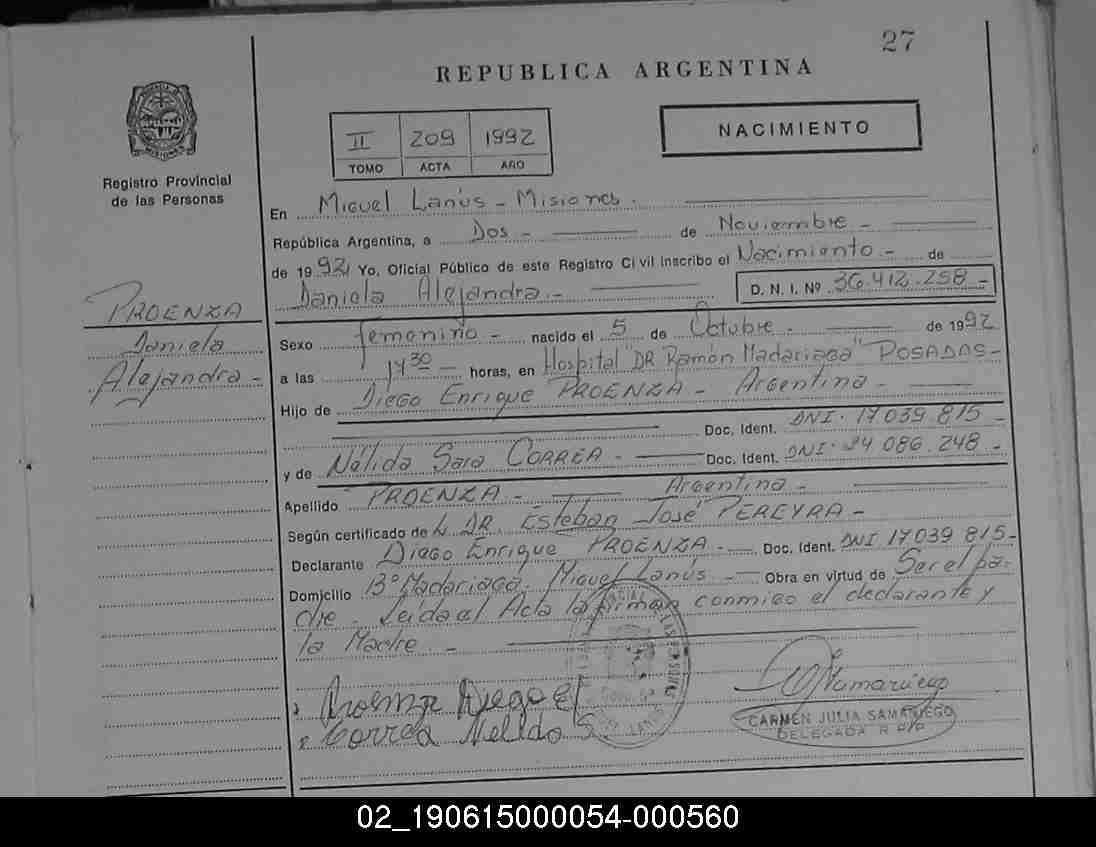 27
REPUBLICA ARGENTINA
II 209 1992
TOMO ACTA AÑO
NACIMIENTO
Registro Provincial
de las Personas
En Miguel Lanús - Misiones.
República Argentina, a Dos - de Noviembre -
de 1992, Yo, Oficial Público de este Registro Civil inscribo el Nacimiento - de
Daniela Alejandra. - D. N. I. Nº 36.412.258 -
PROENZA
Daniela
Alejandra -
Sexo femenino - nacido el 5 de Octubre - de 1992
a las 17 30 - horas, en Hospital "DR Ramón Madariaga" POSADAS -
Hijo de Diego Enrique PROENZA - Argentina -
Doc. Ident. DNI. 17 039 815 -
y de Nélida Sara CORREA - Doc. Ident. DNI. 24 086.248 -
Apellido PROENZA - Argentina -
Según certificado de DR. Esteban José PEREYRA -
Declarante Diego Enrique PROENZA - Doc. Ident. DNI 17 039 815 -
Domicilio Bº Madariaga. Miguel Lanús - Obra en virtud de Ser el pa-
dre. Leida el Acta la firman conmigo el declarante y
la Madre. -
Proenza Diego E
Correa Nelida S
CARMEN JULIA SAMANIEGO
DELEGADA R P P
02_190615000054-000560